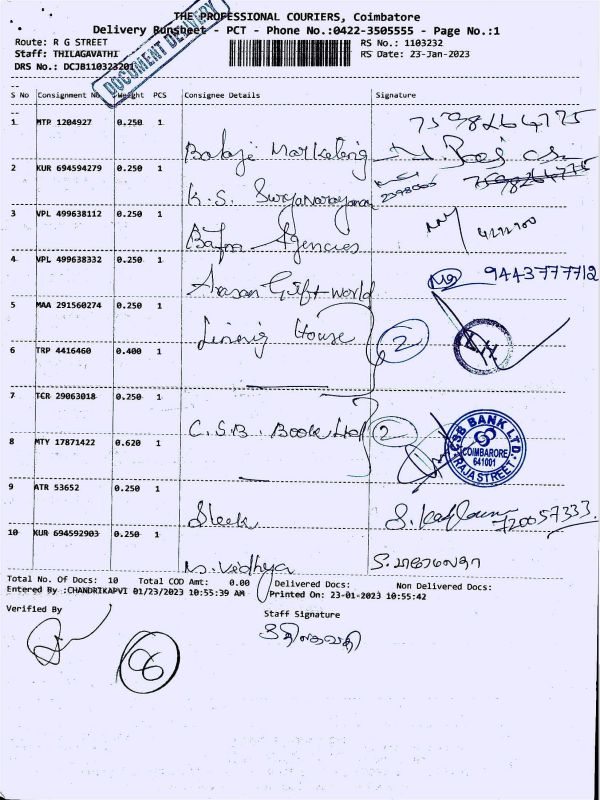 THE PROFESSIONAL COURIERS, Coimbatore
Delivery Runsheet - PCT - Phone No.:0422-3505555 - Page No.:1
DOCUMENT DELIVERY
Route: R G STREET
RS No.: 1103232
Staff: THILAGAVATHI
RS Date: 23-Jan-2023
DRS No.: DCJB110323201
S No Consignment No Weight PCS Consignee Details Signature
7598264775
1 MTP 1204927 0.250 1
Balaji Marketing
2 KUR 694594279 0.250 1
K.S. Suryanarayanan
3 VPL 499638112 0.250 1
Agencies
4 VPL 499638332 0.250 1
9443777712
Arasan Gift World
5 MAA 291560274 0.250 1
House
2
6 TRP 4416460 0.400 1
7 TCR 29063018 0.250 1
C.S.B. Book Ltd
2
CSB BANK LTD.
COIMBARORE
641001
RAJA STREET
8 MTY 17871422 0.620 1
9 ATR 53652 0.250 1
Sleek
10 KUR 694592903 0.250 1
N. Vidhya
Total No. Of Docs: 10 Total COD Amt: 0.00 Delivered Docs: Non Delivered Docs:
Entered By :CHANDRIKAPVI 01/23/2023 10:55:39 AM Printed On: 23-01-2023 10:55:42
Verified By
Staff Signature